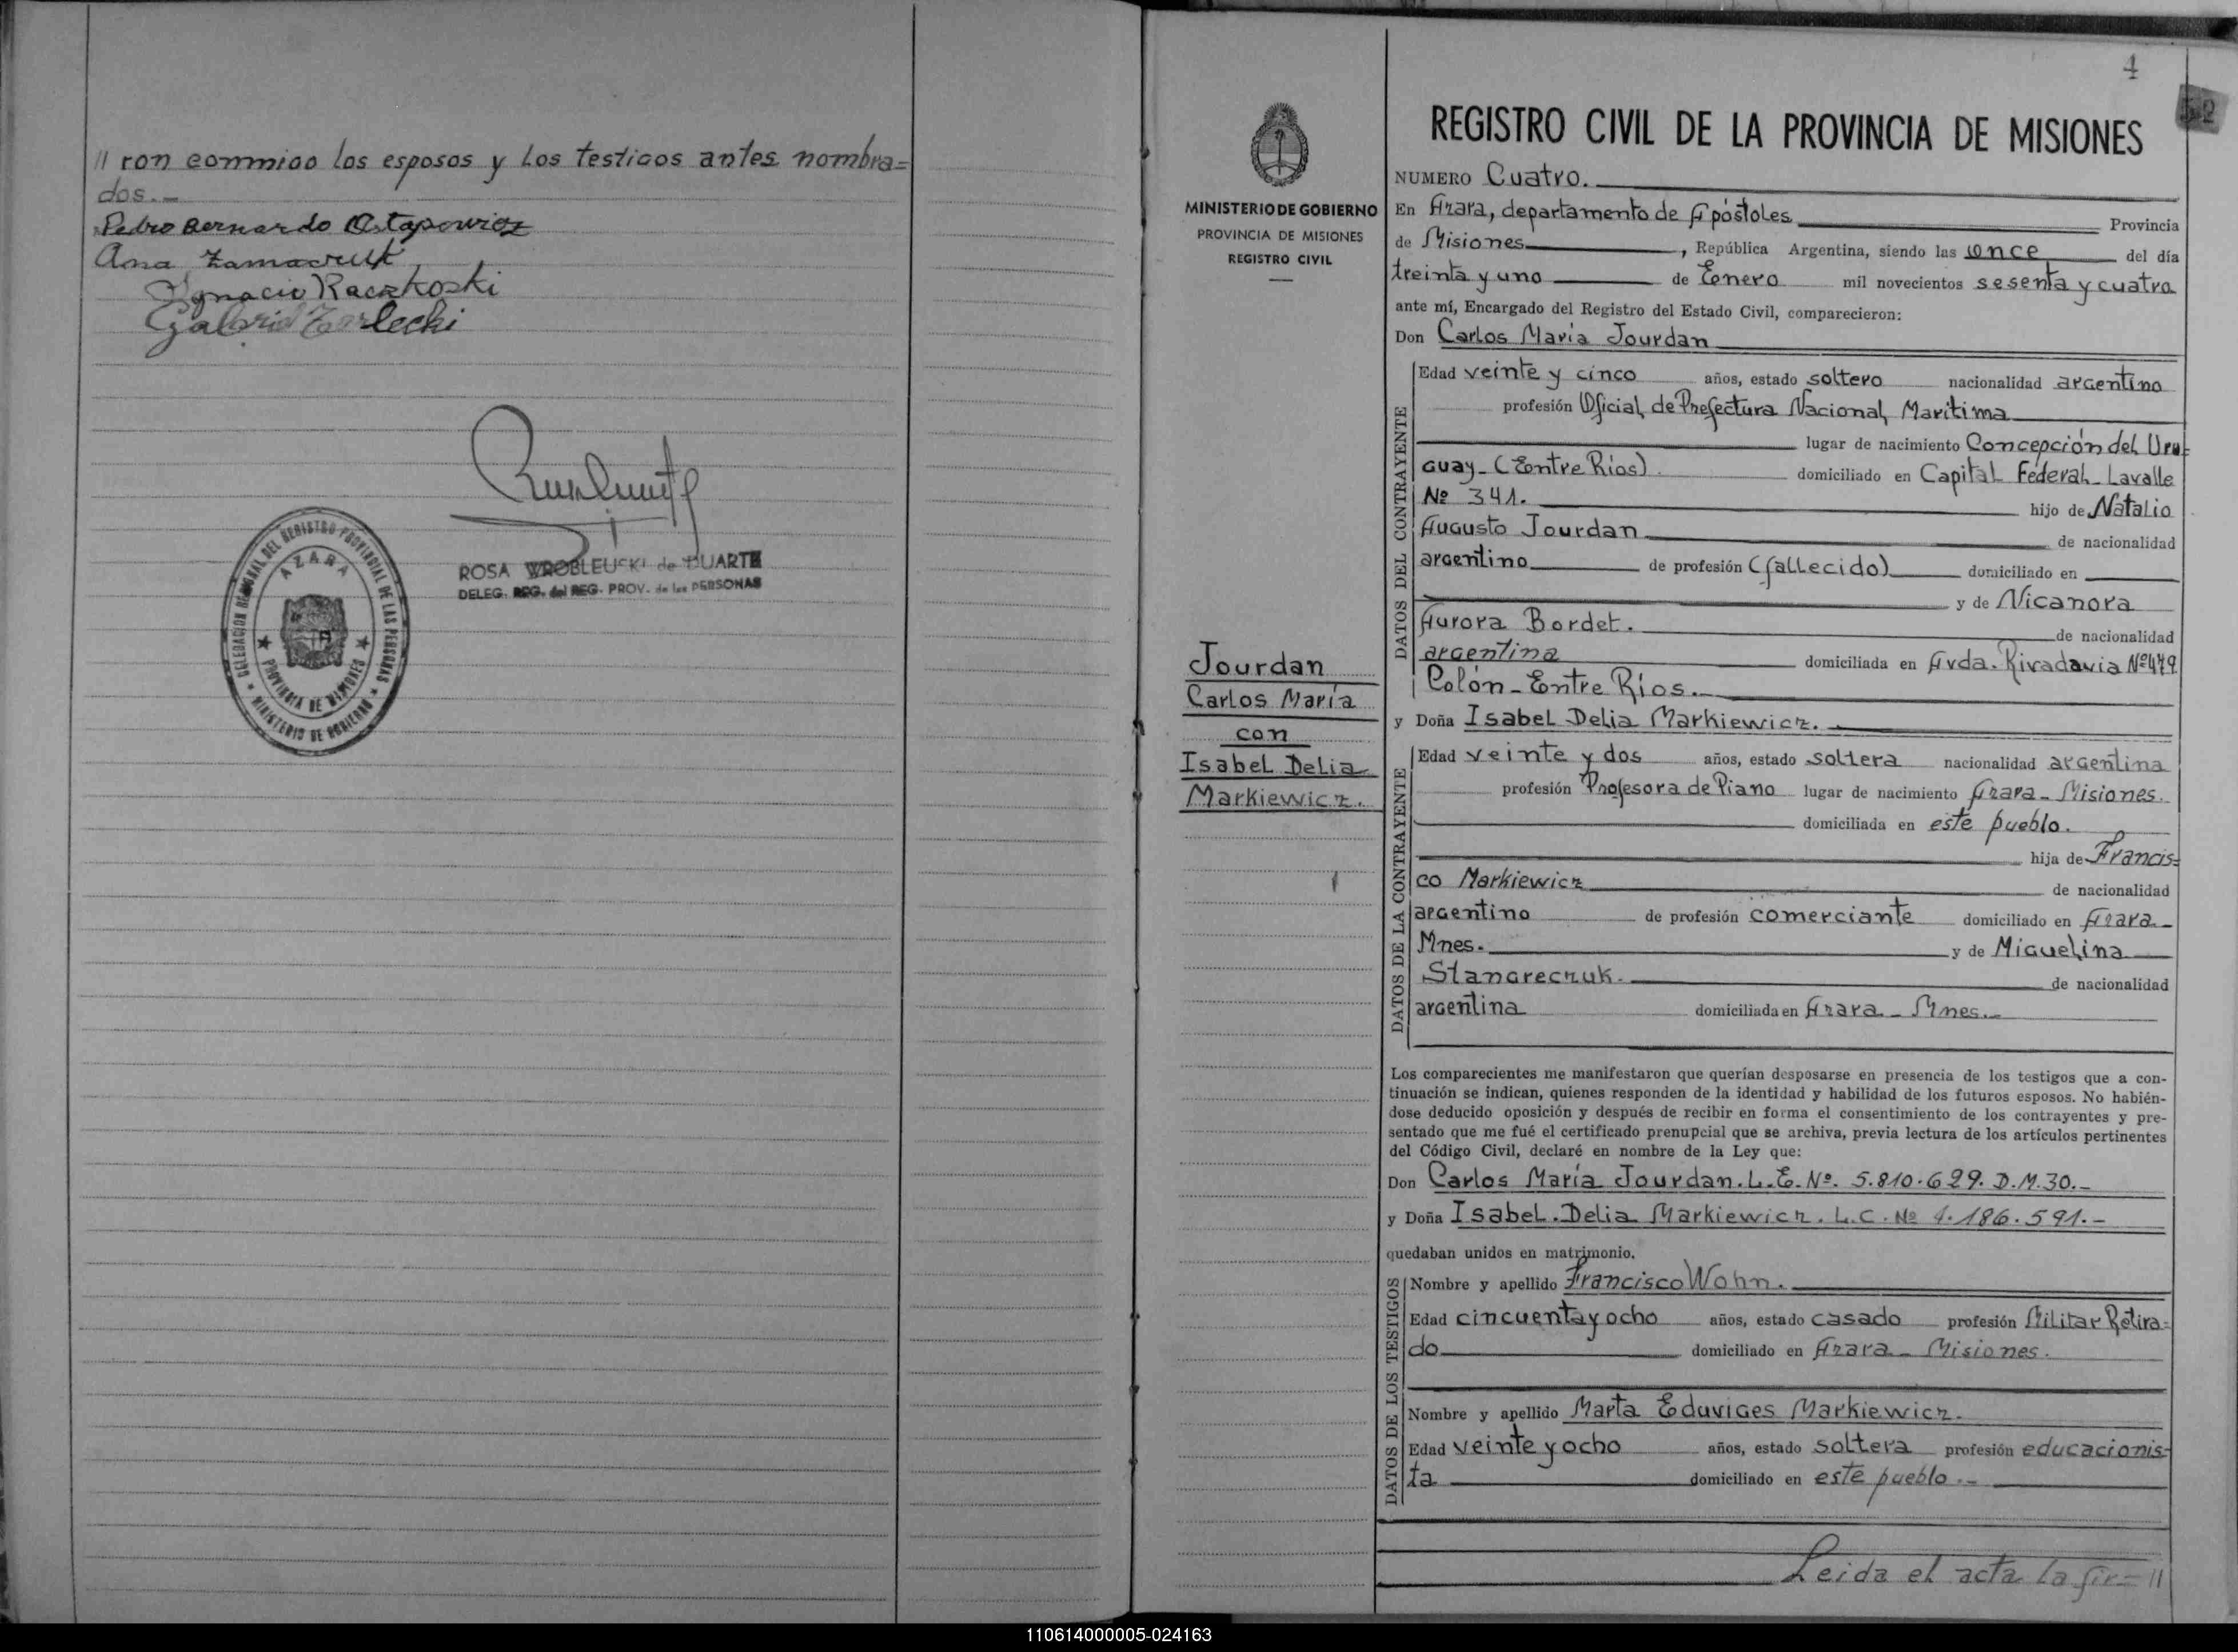 // ron conmigo los esposos y los testigos antes nombra=
dos.-
Pedro Bernardo Ostapowicz
Ana
Ignacio Raczkoski
Gabriel
ROSA WROBLEUSKI de DUARTE
DELEG. REG. del REG. PROV. de las PERSONAS
DELEGACION REGIONAL DEL REGISTRO PROVINCIAL DE LAS PERSONAS
AZARA
PROVINCIA DE MISIONES
MINISTERIO DE GOBIERNO
4
52
MINISTERIO DE GOBIERNO
PROVINCIA DE MISIONES
REGISTRO CIVIL
Jourdan
Carlos María
con
Isabel Delia
Markiewicz.
REGISTRO CIVIL DE LA PROVINCIA DE MISIONES
NUMERO Cuatro.
En Azara, departamento de Apóstoles Provincia
de Misiones, República Argentina, siendo las once del día
treinta y uno de Enero mil novecientos sesenta y cuatro
ante mí, Encargado del Registro del Estado Civil, comparecieron:
Don Carlos María Jourdan
DATOS DEL CONTRAYENTE
Edad veinte y cinco años, estado soltero nacionalidad argentino
profesión Oficial de Prefectura Nacional Marítima
lugar de nacimiento Concepción del Uru=
guay-(Entre Ríos) domiciliado en Capital Federal-Lavalle
Nº 341. hijo de Natalio
Augusto Jourdan de nacionalidad
argentino de profesión (fallecido) domiciliado en
y de Nicanora
Aurora Bordet. de nacionalidad
argentina domiciliada en Avda. Rivadavia Nº479
Colón-Entre Ríos.
y Doña Isabel Delia Markiewicz.
DATOS DE LA CONTRAYENTE
Edad veinte y dos años, estado soltera nacionalidad argentina
profesión Profesora de Piano lugar de nacimiento Azara-Misiones.
domiciliada en este pueblo.
hija de Francis=
co Markiewicz de nacionalidad
argentino de profesión comerciante domiciliado en Azara-
Mnes. y de Miguelina
Stangreczuk. de nacionalidad
argentina domiciliada en Azara-Mnes.
Los comparecientes me manifestaron que querían desposarse en presencia de los testigos que a con-
tinuación se indican, quienes responden de la identidad y habilidad de los futuros esposos. No habién-
dose deducido oposición y después de recibir en forma el consentimiento de los contrayentes y pre-
sentado que me fué el certificado prenupcial que se archiva, previa lectura de los artículos pertinentes
del Código Civil, declaré en nombre de la Ley que:
Don Carlos María Jourdan. L.E. Nº. 5.810.629. D.M.30.-
y Doña Isabel Delia Markiewicz. L.C. Nº 4.186.591.-
quedaban unidos en matrimonio.
DATOS DE LOS TESTIGOS
Nombre y apellido Francisco Wohn.
Edad cincuenta y ocho años, estado casado profesión Militar Retira=
do domiciliado en Azara-Misiones.
Nombre y apellido Marta Eduviges Markiewicz.
Edad veinte y ocho años, estado soltera profesión educacionis=
ta domiciliado en este pueblo.-
Leida el acta la fir= //
110614000005-024163